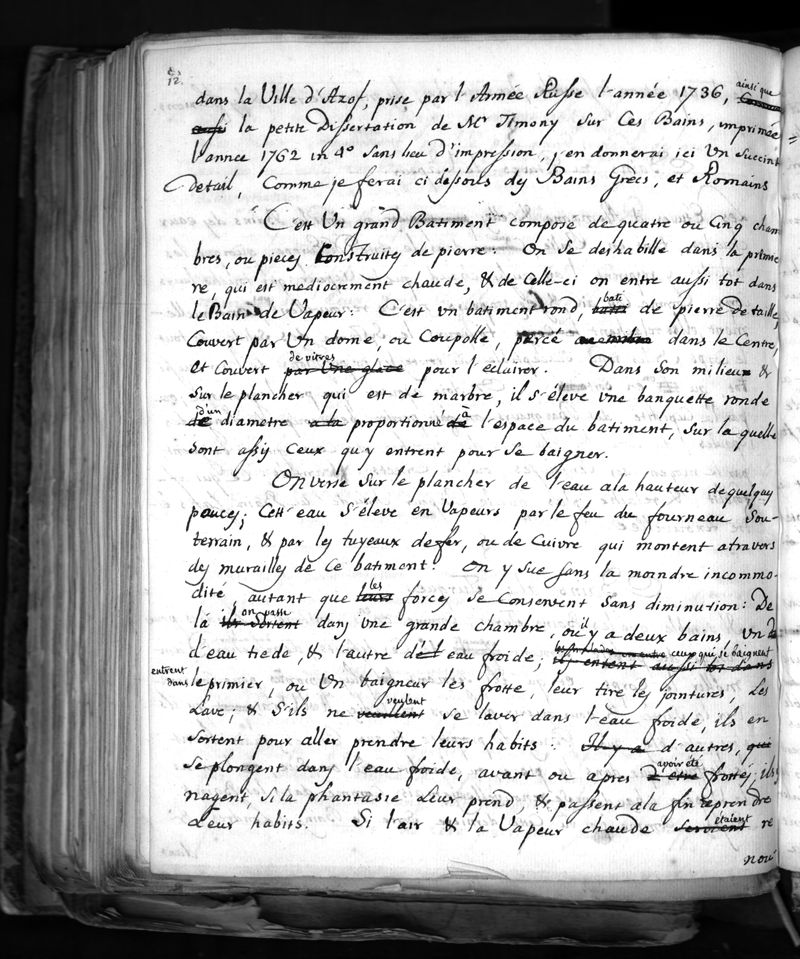 12.
dans la Ville d'Azof, prise par l'Armée Russe l'année 1736, ainsi que
aussi la petite Dissertation de Mr Timony sur Ces Bains, imprimée
l'annee 1762 in 4° sans lieu d'impression, j'en donnerai ici Un Succint
Detail, Comme je ferai ci dessous des Bains Grecs, et Romains
C'est Un grand Batiment composé de quatre ou Cinq cham
bres, ou pieces Construites de pierre. On Se deshabille dans la prèmie
re, qui est mediocrement chaude, & de Celle-ci on entre aussi tot dans
le Bain de Vapeur: C'est un batiment rond, bati de pierre de taille,
Couvert par Un dome, ou Coupolle, percé dans le Centre,
et Couvert par Une glace de vitres pour l'eclairer. Dans Son milieu &
Sur le plancher qui est de marbre, il s'éleve une banquette ronde
de d'un diametre a la proportionné de a l'espace du batiment, sur la quelle
sont assis Ceux qui y entrent pour se baigner.
On verse Sur le plancher de l'eau a la hauteur de quelques
pouces; Cette eau S'éleve en Vapeurs par le feu du fourneau Sou-
terrain, & par les tuyeaux de fer, ou de Cuivre qui montent atravers
des murailles de Ce batiment. On y sue sans la moindre incommo-
dité, autant que leurs les forces se Conservent Sans diminution: De
là ils Sortent on passe dans une grande chambre, où il y a deux bains, un d
d'eau tiede, & l'autre d'eau froide; ceux qui se baignent ils entrent aussi tot dans
entrent dans le prèmier, ou Un baigneur les frotte, leur tire les jointures, Les
Lave; & S'ils ne veuillent veulent se laver dans l'eau froide, ils en
Sortent pour aller prendre leurs habits: Il y a d'autres, qui
se plongent dans l'eau froide, avant ou apres d'etre avoir été frottés, ils
nagent, Si la phantasie Leur prend, & passent a la fin reprendre
Leur habits. Si l'air & la Vapeur chaude seroient etaient re
nou